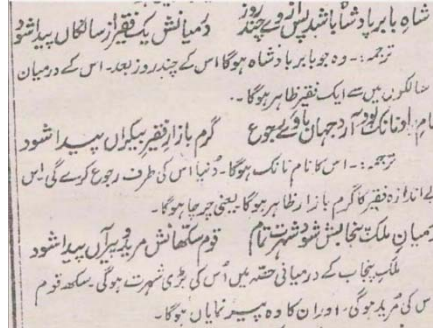 شاہِ بابر بادشاہ باشد پس از وے چند روز درمیانش یک فقیر از سالکاں پیدا شود
ترجمہ:۔ وہ جو بابر بادشاہ ہوگا اس کے چند روز بعد۔ اس کے درمیان
سالکوں میں سے ایک فقیر ظاہر ہوگا۔
نام او نانک بود آرد جہاں باوے رجوع گرم بازارِ فقیر بیکراں پیدا شود
ترجمہ:۔ اس کا نام نانک ہوگا۔ دُنیا اس کی طرف رجوع کرے گی اس
بے اندازہ فقیر کا گرم بازار ظاہر ہوگا یعنی چرچا ہوگا۔
درمیانِ ملک پنجابش شود شہرت تمام قوم سکھانش مرید و پیر آں پیدا شود
ملک پنجاب کے درمیانی حصّہ میں اُس کی بڑی شہرت ہوگی۔ سکھ قوم
اس کی مُرید ہوگی۔ اور ان کا وہ پیر نمایاں ہوگا۔